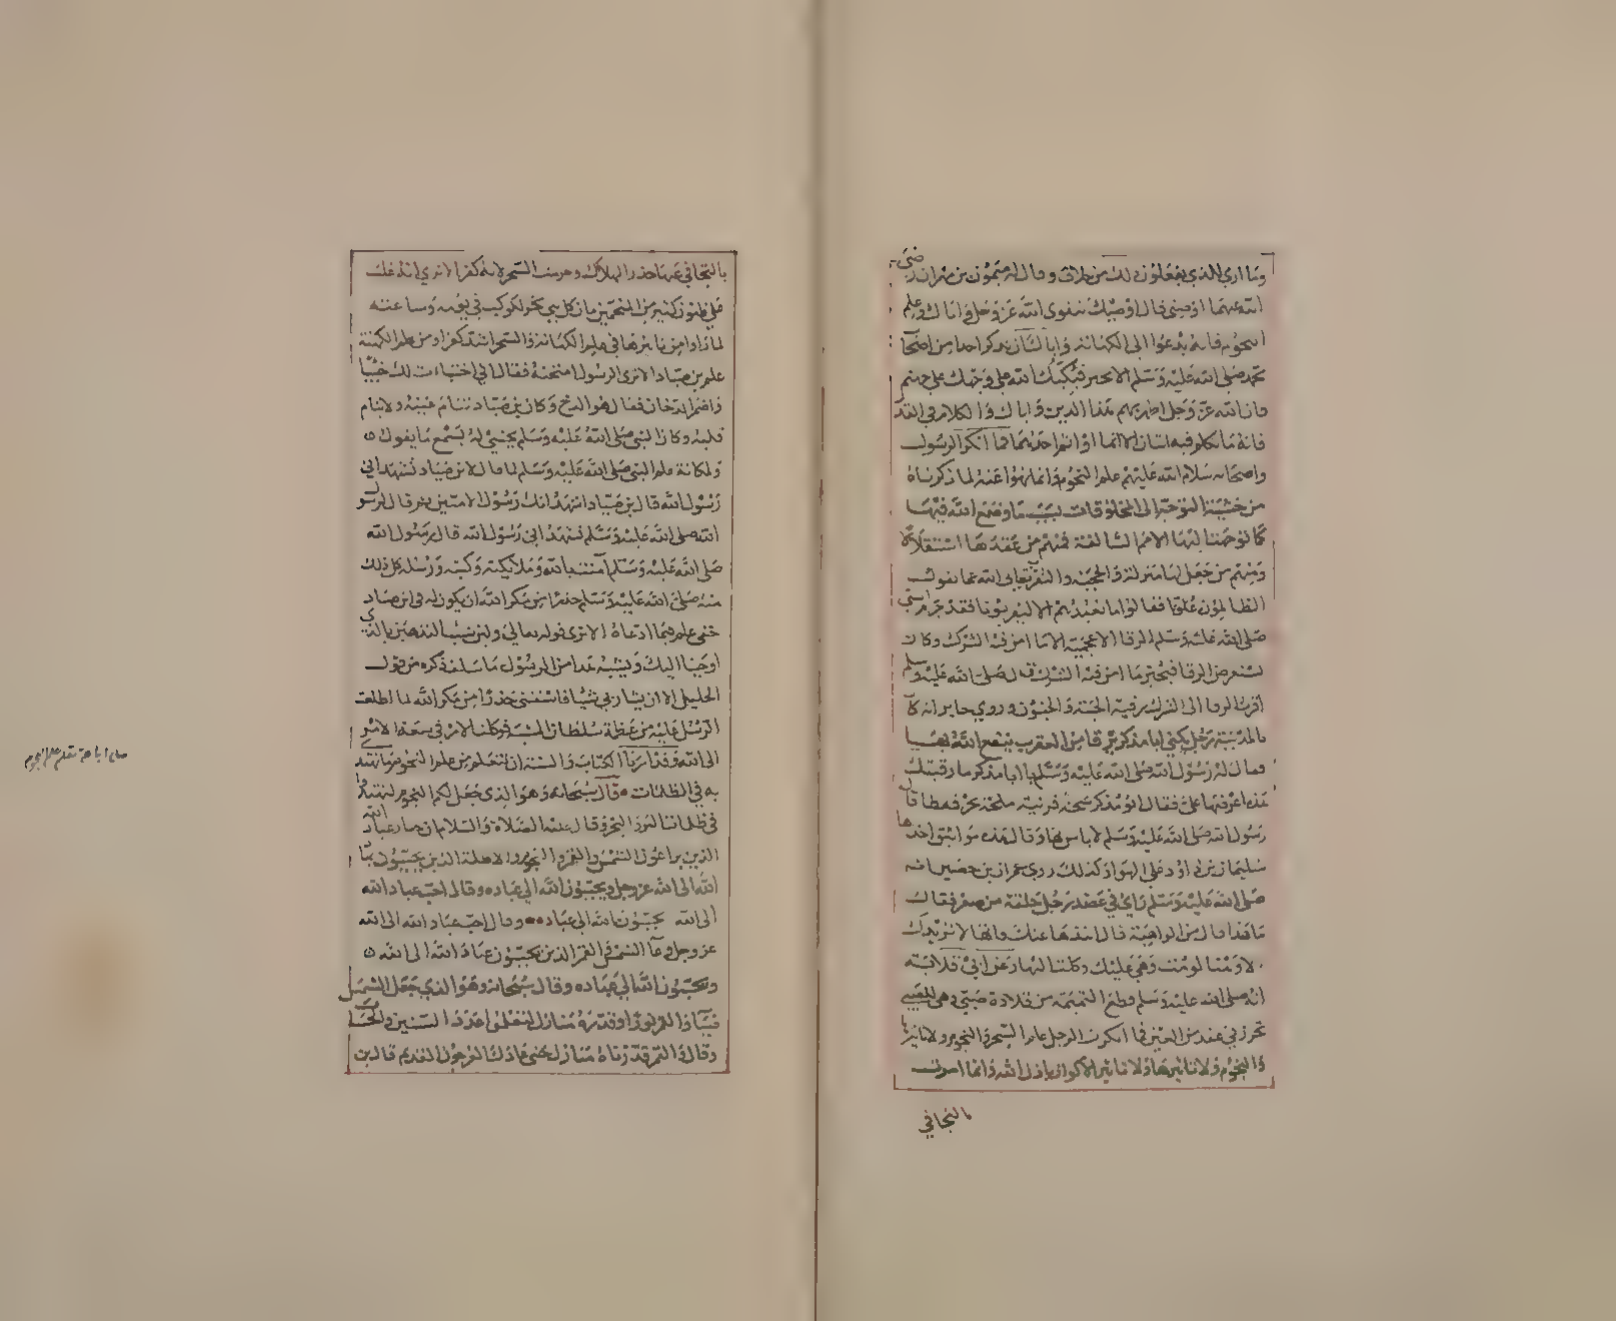 وما اري للذي يفعلون ذلك من خلاق وقال له ميمون بن مهران رضى
الله عنهما اوصنى قال اوصيك بتقوى الله عز وجل واياك وعلم
النجوم فانه يدعوا الى الكهانة واياك ان تذكر احدا من اصحاب
محمد صلى الله عليه وسلم الا بخير فيكبك الله على وجهك على جهنم
فان الله عز وجل اظهر بهم هذا الدين واياك والكلام في القدر
فانه ما تكلم فيه اثنان الا اثما او اثم احدهما فما انكر الرسول
واصحابه سلام الله عليهم علم النجوم وانما نهوا عنه لما ذكرناه
من خشية التوجه الى المخلوقات بسبب ما وضع الله فيها
كما توجهت لها الامم السالفة فمنهم من عقدها استقلالا
ومنهم من جعل لها منزلة والحجبة والتقرب تعالى الله عما يقول
الظالمون علوا فقالوا ما نعبدهم الا ليقربونا فقد حرم النبي
صلى الله عليه وسلم الرقا الاعجمية الا ما امن فيه الشرك وكان
يستعرض الرقا فيخير ما امن فيه الشرك قال صلى الله عليه وسلم
اقرب الرقا الى الشرك رقية الحية والجنون وروي جابر انه كان
بالمدينة رجل يكنى ابا مذكر يرقا من العقرب ينفع الله بها
وقال له رسول الله صلى الله عليه وسلم يا ابا مذكر ما رقيتك
هذه اعرضها على فقال ابو مذكر شجة قرنية ملحة بحر قفطا قال
رسول الله صلى الله عليه وسلم لا باس بها وقال هذه مواثيق اخذها
سليمان بن داود على الهوام وكذلك روي عمران بن حصين انه
صلى الله عليه وسلم راى في عضد رجل حلقة من صفر فقال
ما هذا قال من الواهنة قال انبذها عنك فانها لا تزيدك
الا وهنا لو مت وهي عليك وكلت اليها وعن ابي قلابة
انه صلى الله عليه وسلم قطع التميمة من قلادة صبي وهي التي
تحرز في عضد من العين فما انكرت الرجل علم السحر والنجوم ولا تاثيرها
والنجوم ولا تاثيرها ولا تاثير الاكوان باذن الله وانما امرت
بالتجافي
بالتجافي عنها حذر الهلاك وحرمت السحر لانه كفر الا تري انه غلب
على ظنون كثير من المنجمين بان كل شي يجري لكوكب في يومه وساعته
لما راوا من تاثيرها في علم الكهانة والسحر اشد كفرا ومن علم الكهنة
علم بن صياد الا ترى الرسول امتحنه فقال اني اختبات لك خبيا
واضمر الدخان فقال هو الدخ وكان بن صياد تنام عينه ولا ينام
قلبه وكان النبي صلى الله عليه وسلم يجي له يسمع ما يقول ه
ولمكانة علم النبي صلى الله عليه وسلم لما قال لابن صياد تشهد اني
رسول الله قال بن صياد اشهد انك رسول الاميين ثم قال لرسول
الله صلى الله عليه وسلم تشهد اني رسول الله قال رسول الله
صلى الله عليه وسلم آمنت بالله وملايكته وكتبه ورسله كل ذلك
منه صلى الله عليه وسلم حذرا من مكر الله ان يكون له في ابن صياد
خفي علم فيما ادعاه الا ترى قوله تعالى ولين شينا لنذهبن بالذي
اوحينا اليك ويشبه هذا من الرسول ما سلف ذكره من قول
الخليل الا ان يشا ربي شيا فاستثنى حذرا من مكر الله لما اطلعت
الرسل عليه من عظمة سلطان المشيه فوكلت الامر في سعة الامر
الى الله وقد امرنا الكتاب والسنة ان نتعلم من علم النجوم ما نهتدي
به في الظلمات ه قال سبحانه وهو الذى جعل لكم النجوم لتهتدوا
في ظلمات البر والبحر وقال عليه الصلاة والسلام ان خيار عباد الله
الذين يراعون الشمس والقمر والنجوم والاهلة الذين يحببون
الله الى الله عز وجل ويحببون الله الى عباده وقال احب عباد الله
الى الله يحببون الله الى عباده وقال احب عباد الله الى الله
عز وجل رعآ الشمس والقمر الذين يحببون عباد الله الى الله ه
ويحببون الله الى عباده وقال سبحانه وهو الذي جعل الشمس
ضيآ والقمر نورا وقدره منازل لتعلموا عدد السنين والحساب
وقال والقمر قدرناه منازل حتى عاد كالعرجون القديم قال بن